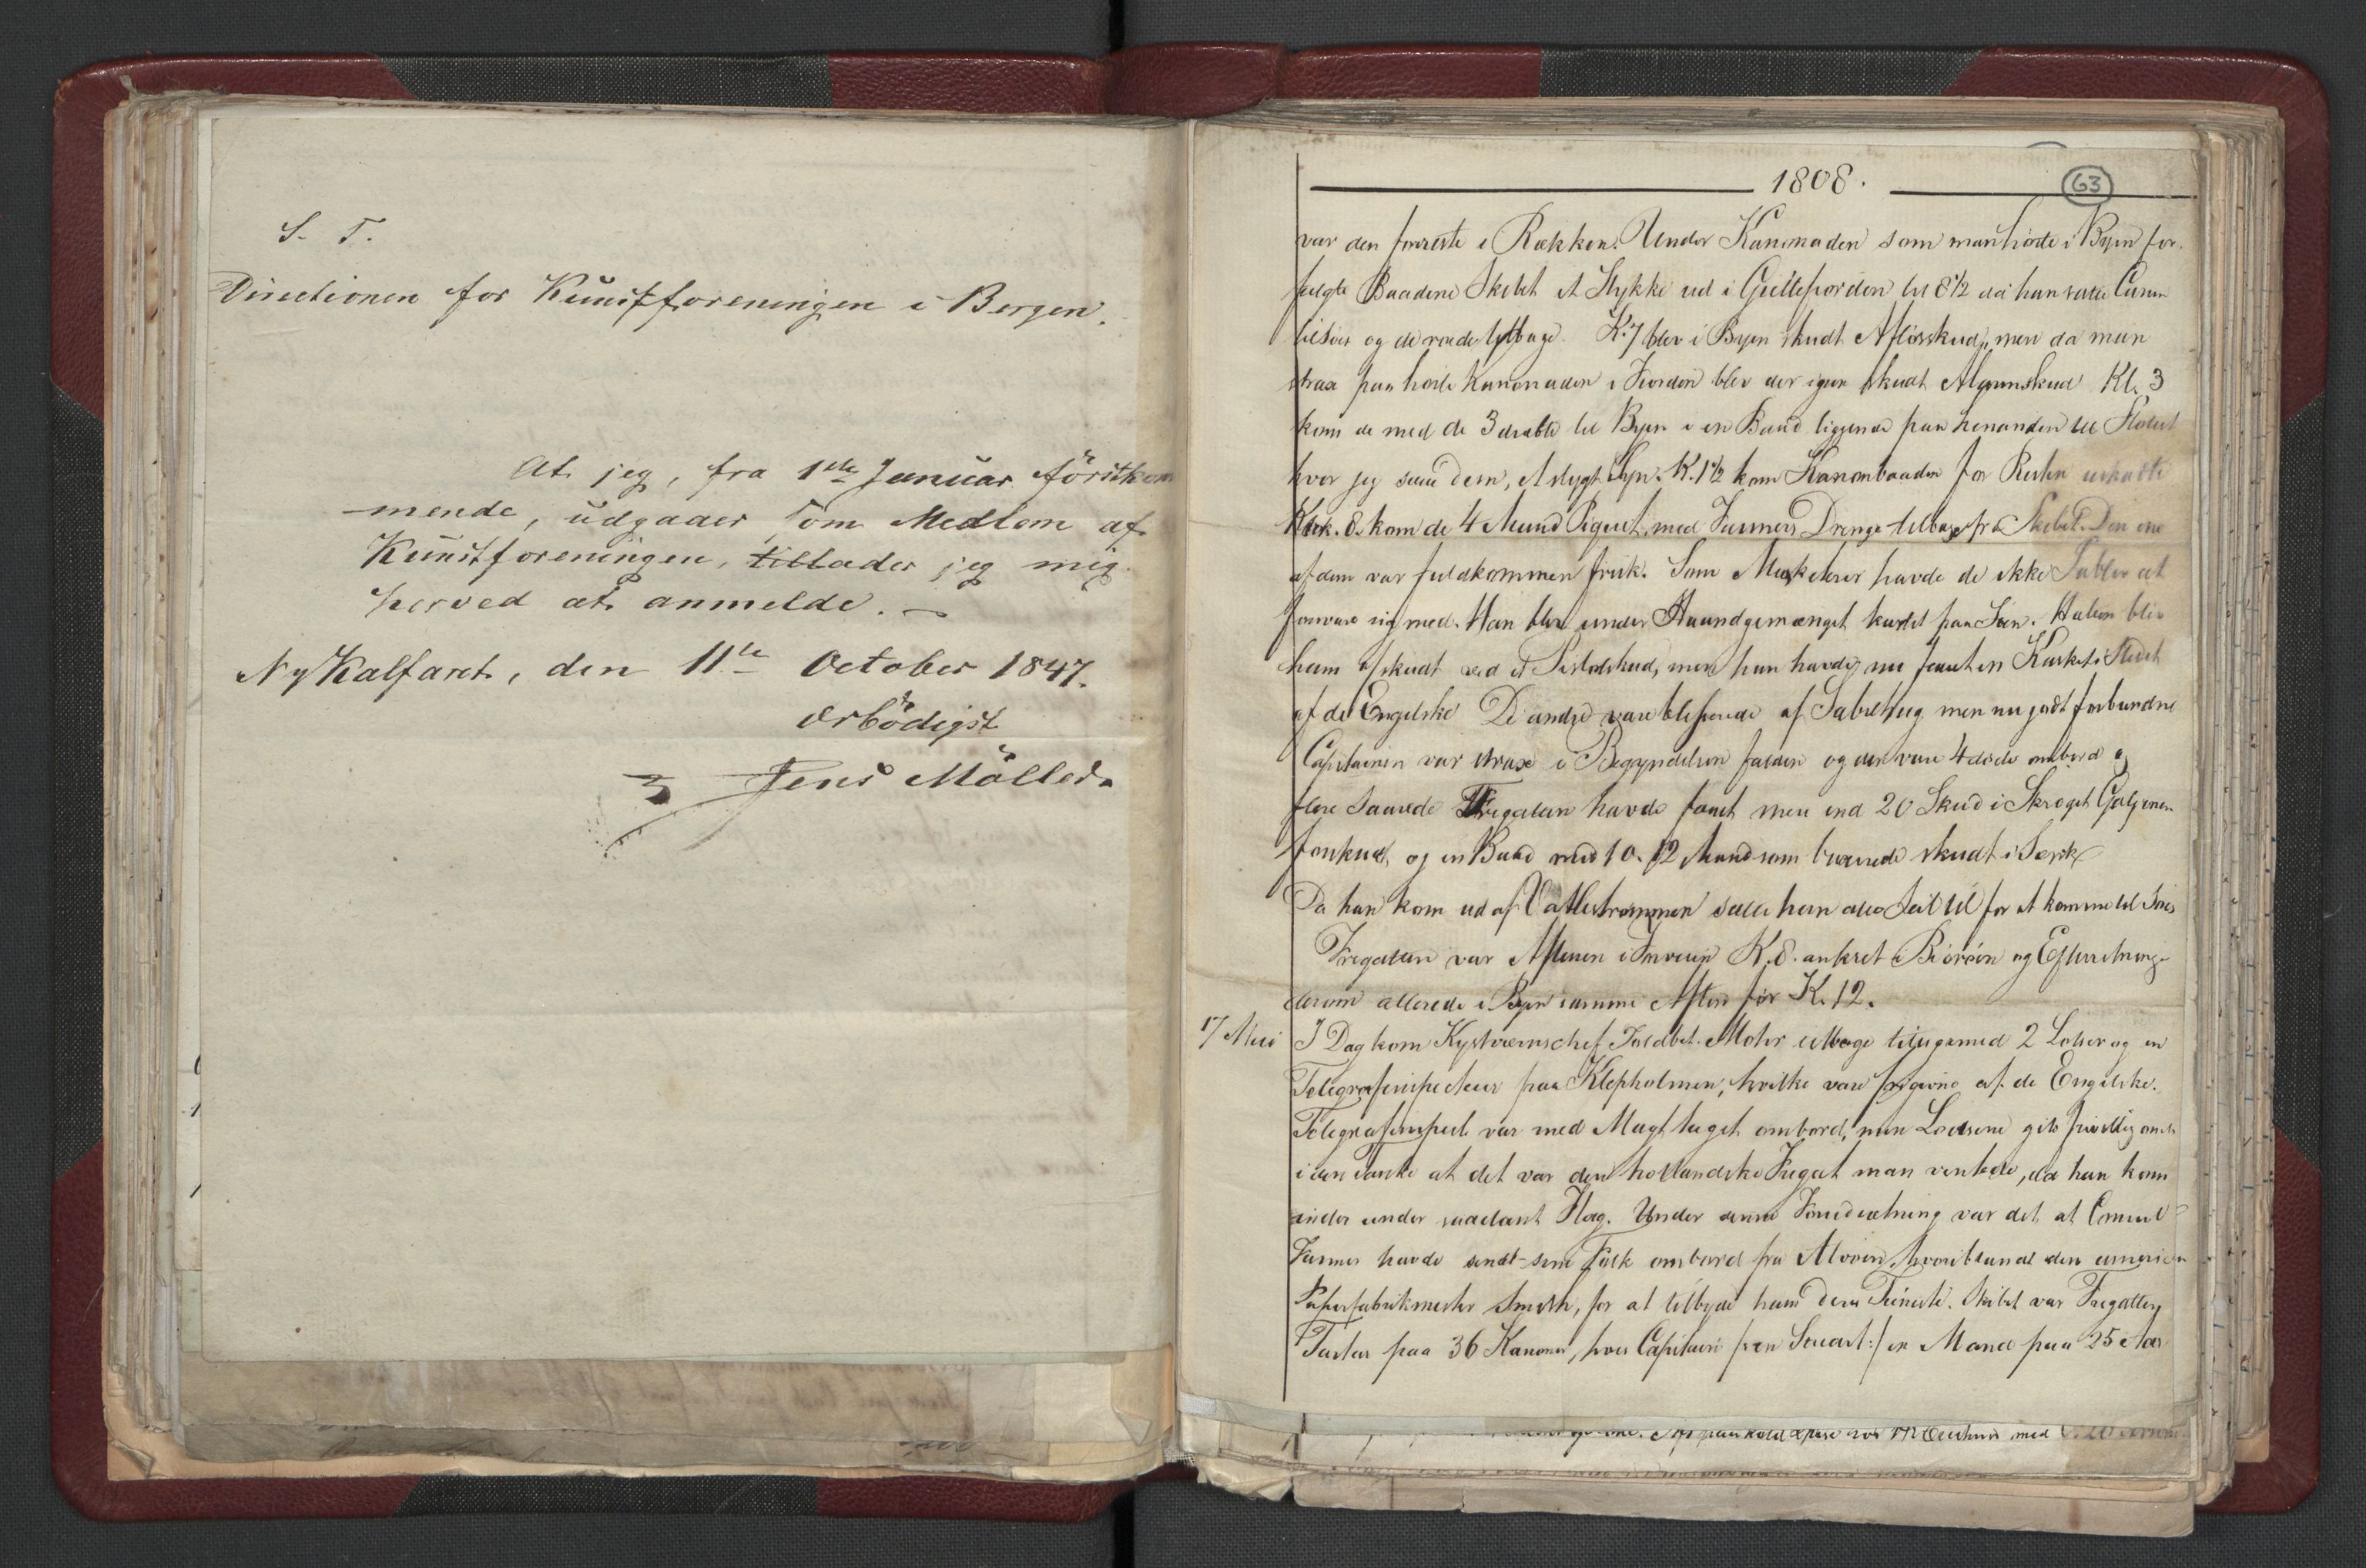 S. T.
Directionen for Kunstforeningen i Bergen.
At jeg, fra 1ste Januar förstkom
mende, udgaaer som Medlem af
Kunstforeningen, tillader jeg mig
herved at anmelde.
Ny Kalfaret, den 11te October 1847.
Erbödigst
Jens Möller.
1808.
63
var den forreste i Rækken. Under Kanonaden som man hörte i Byen for-
fulgte Baadene Skibet et Stykke ud i Gjeltefjorden til 8½ da han satte
tilside og de roede tilbage. K. 7 blev i Byen skudt Aflösskud, men da man
strax paa hörte Kanonaden i Fjorden blev der igjen skudt Alarmskud Kl. 3
kom de med de 3 dræbte til Byen i en Baad liggende paa hinanden til Slottet
hvor jeg saae dem, et stygt Syn. K. 1½ kom Kanonbaaden for
Klok. 8. kom de 4 Mand Piquet med Jansens Drenge tilbage fra Skibet. Den ene
af dem var fuldkommen frisk. Som Musketerer havde de ikke Sabler at
forsvare sig med. Han blev under Haandgemænget kastet paa Söen. Hatten blev
ham afskudt ved et Pistolskud, men han havde nu faaet en Kaskets i Stedet
af de Engelske De andre vare blesserede af Sabelhug men nu godt forbundne
Capitainen var strax i Begyndelsen falden og der vare 4 döde ombord og
flere Saarede Fregatten havde faaet mere end 20 Skud i Skroget
forskudt, og en Baad med 10-12 Mand som buxerede skudt i Sænk
Da han kom ud af Vatlestrømmen satte han alle Seil til for at komme til Söes
Fregatten var Aftenen i Forveien K. 8. ankret i Biöröen og Efterretning
derom allerede i Byen samme Aften för K. 12.
17 Mai I Dag kom Kystværnschef Toldbet. Mohr tilbage tilligemed 2 Lotser og en
Telegrafinspecteur paa Klepholmen, hvilke vare frigivne af de Engelske.
Telegrafinspect. var med Magt taget ombord, men Lodserne gik frivillig omb.
i den Tanke at det var den hollandske Fregat man ventede, da han kom
inden under saadant Flag. Under denne Forudsætning var det at Consul
Jansen havde sendt sine Folk ombord fra Alvöen, hvoriblandt den american
Papirfabrikmester Smith, for at tilbyde ham deres Tieneste. Skibet var Fregatten
Tartar paa 36 Kanoner, hvis Capitain en Mand paa 25 Aar